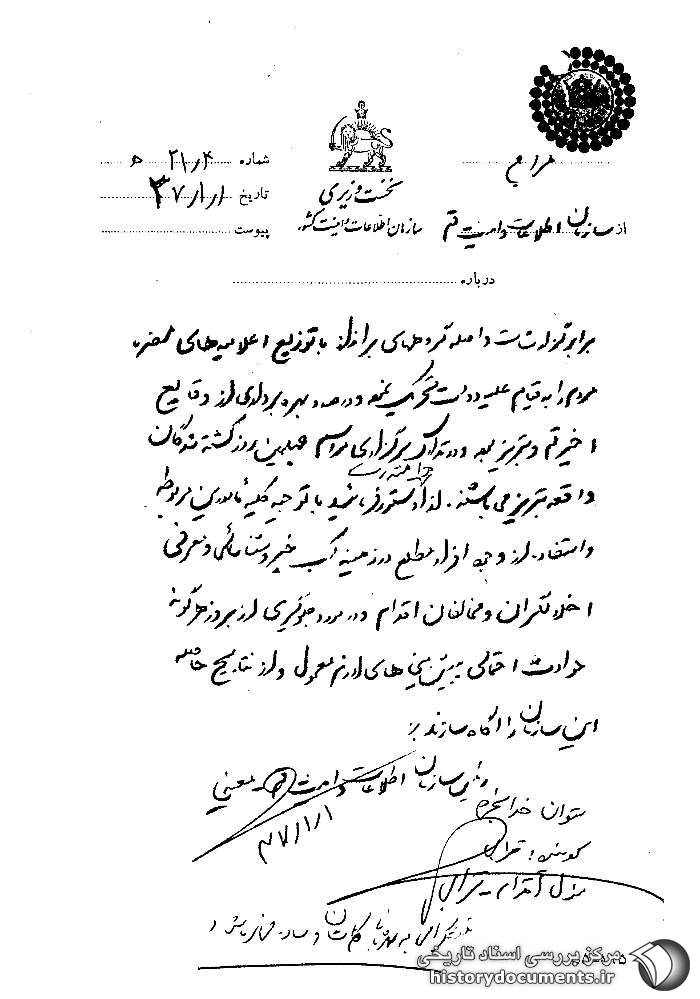 شماره ۲۱٫۴ ه
تاریخ ۳۷/۱/۱
پیوست
نخست وزیری
سازمان اطلاعات و امنیت کشور
از سازمان اطلاعات و امنیت قم
درباره
برابر گروههای برانداز با توزیع اعلامیه‌های مضره
مردم را به قیام علیه دولت تحریک نموده و درصدد بهره برداری از وقایع
اخیر قم و تبریز بوده و در تدارک برگزاری مراسم چهلمین روز کشته شدگان
واقعه تبریز می باشند. لذا دستور فرمائید با توجیه کلیه مامورین مربوطه
و استفاده از وجود افراد مطلع در زمینه کسب خبر و شناسائی و معرفی
اخلالگران و مخالفان اقدام و در مورد جلوگیری از بروز هرگونه
حوادث احتمالی پیش بینی های لازم معمول و از نتایج حاصله
این سازمان را آگاه سازند
رئیس سازمان اطلاعات و امنیت قم معینی
۳۷/۱/۱
ستوان
گوینده:
مسئول اقدام
مرکز بررسی اسناد تاریخی
historydocuments.ir